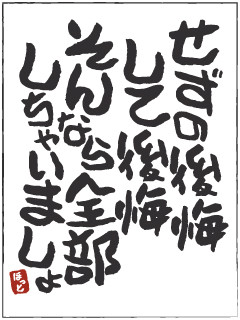 せずの後悔
して後悔
そんなら全部
しちゃいましょ
ほっと